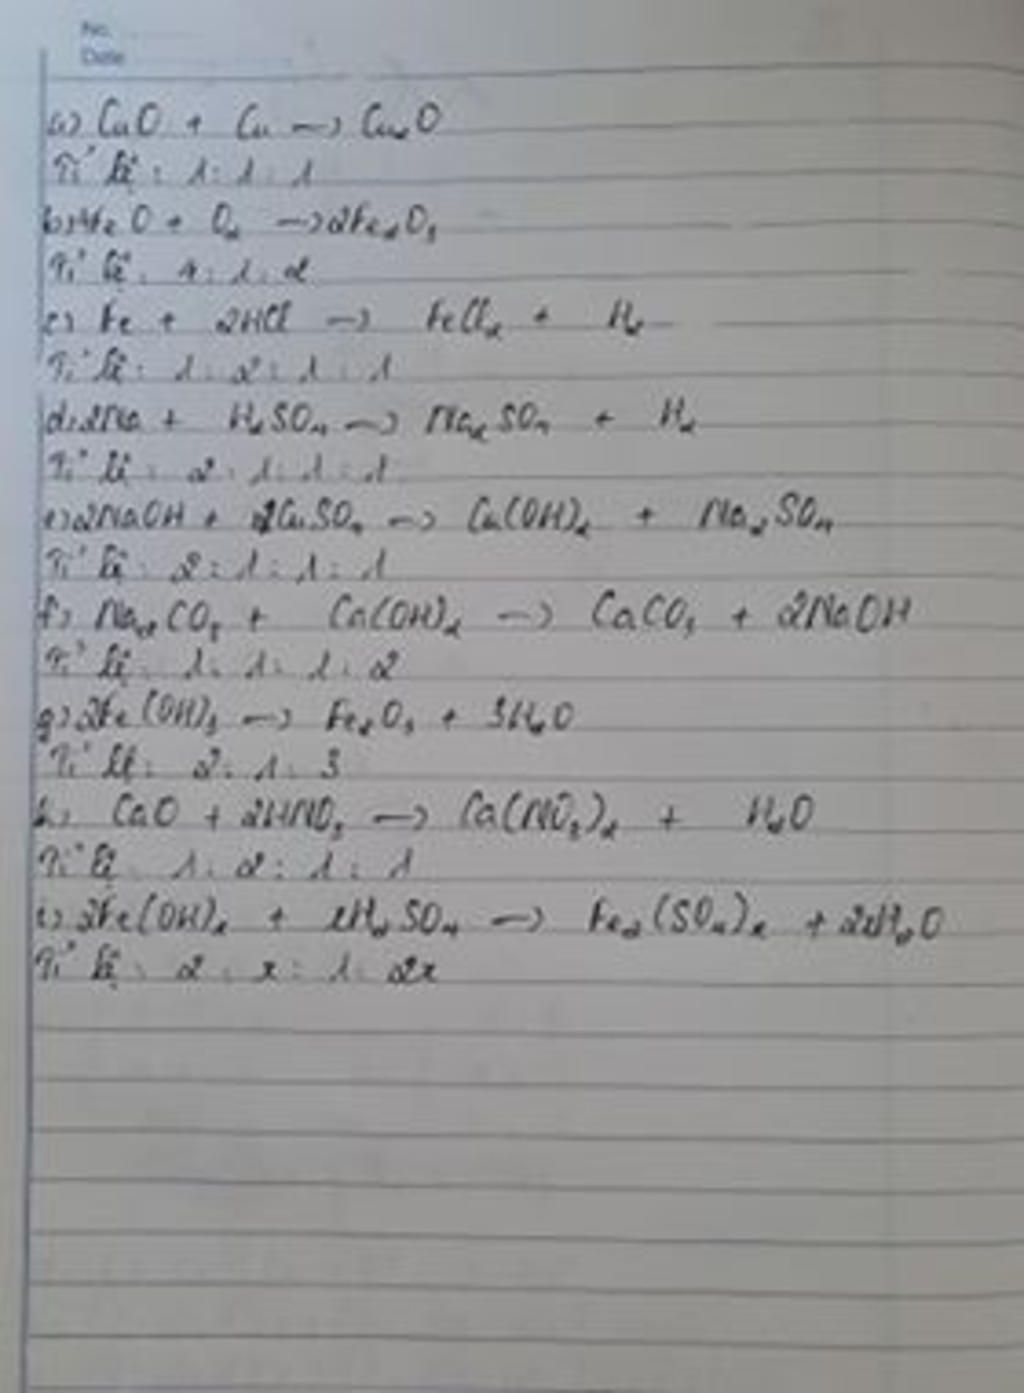 No.
Date
a) CuO + Cu → Cu₂O
Tỉ lệ : 1 : 1 : 1
b) 4FeO + O₂ → 2Fe₂O₃
Tỉ lệ : 4 : 1 : 2
c) Fe + 2HCl → FeCl₂ + H₂
Tỉ lệ : 1 : 2 : 1 : 1
d) 2Na + H₂SO₄ → Na₂SO₄ + H₂
Tỉ lệ : 2 : 1 : 1 : 1
e) 2NaOH + CuSO₄ → Cu(OH)₂ + Na₂SO₄
Tỉ lệ : 2 : 1 : 1 : 1
f) Na₂CO₃ + Ca(OH)₂ → CaCO₃ + 2NaOH
Tỉ lệ : 1 : 1 : 1 : 2
g) 2Fe(OH)₃ → Fe₂O₃ + 3H₂O
Tỉ lệ : 2 : 1 : 3
h) CaO + 2HNO₃ → Ca(NO₃)₂ + H₂O
Tỉ lệ : 1 : 2 : 1 : 1
i) 2Fe(OH)ₓ + xH₂SO₄ → Fe₂(SO₄)ₓ + 2xH₂O
Tỉ lệ : 2 : x : 1 : 2x